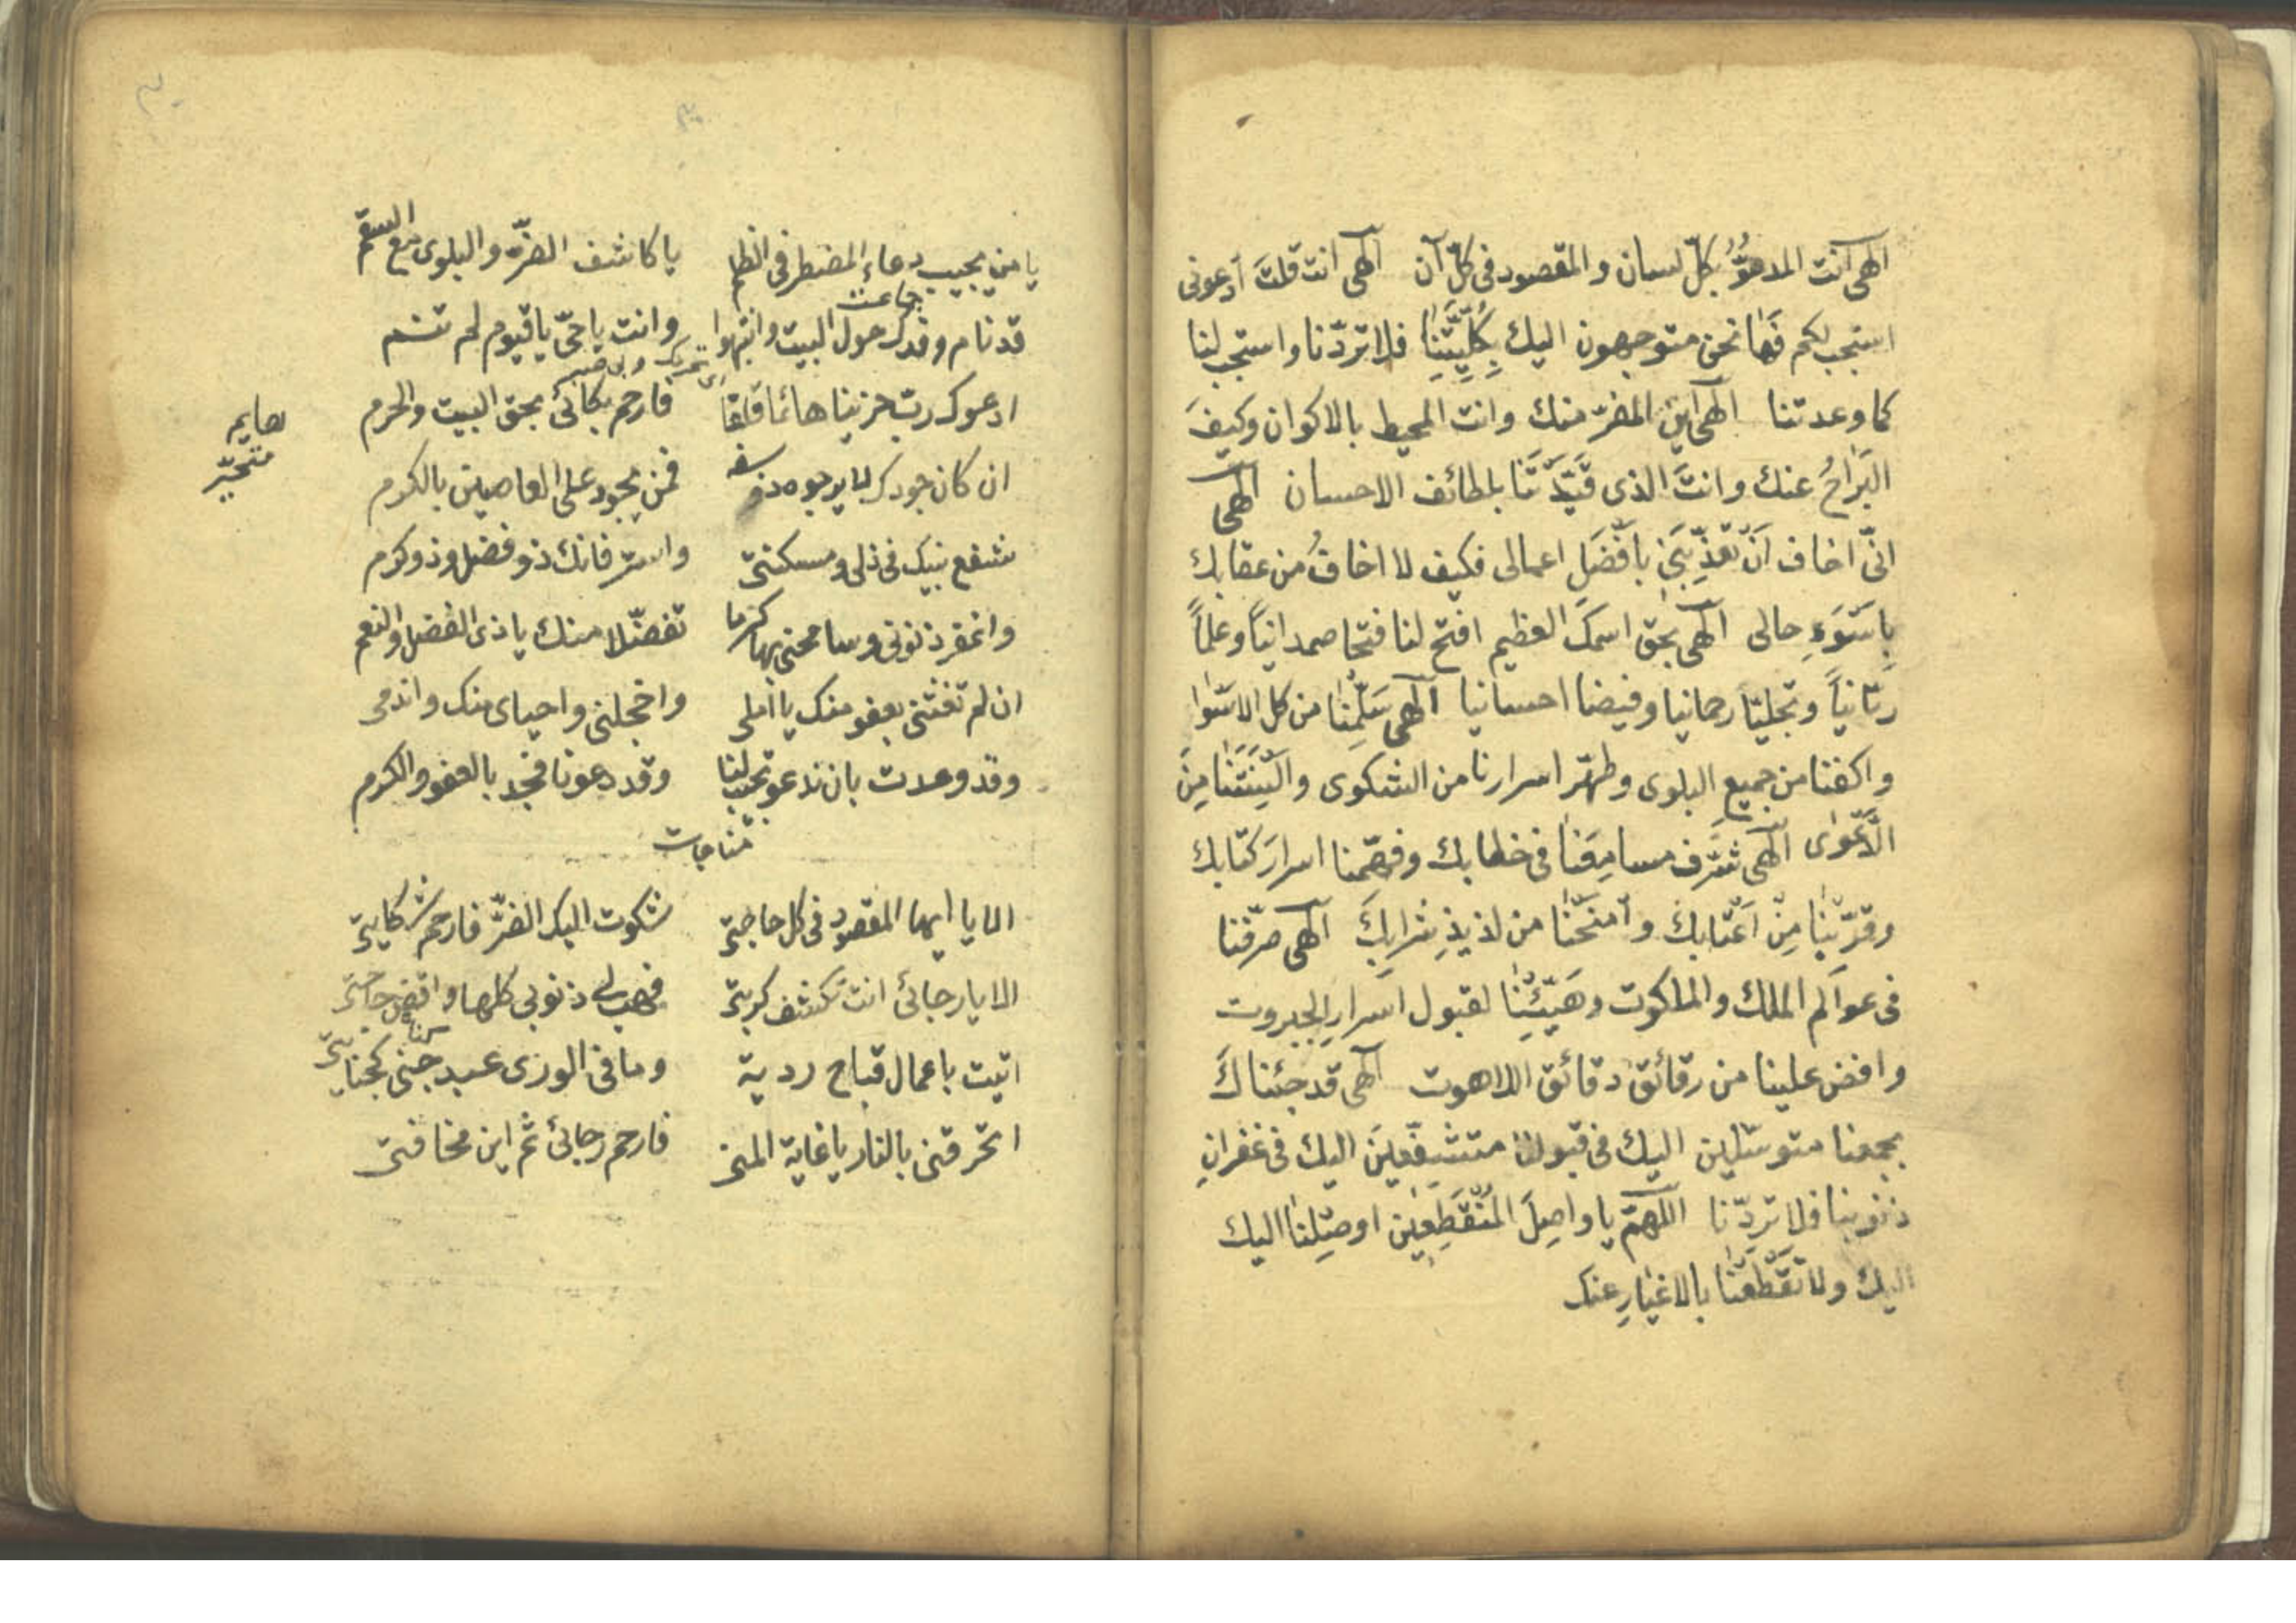 الهى انت المدعوُّ بكلّ لسان والمقصود فى كلّ آن الهى انت قلتَ ادعونى
استجب لكم فَها نحن متوجهون اليك بِكُلِّيَّتِنا فلا تردّنا واستجب لنا
كما وعدتنا الهى اين المفرّ منك وانت المحيط بالاكوان وكيفَ
البَرَاحُ عنك وانتَ الذى قَيَّدْتَنا بلطائف الاحسان الهى
انّى اخاف اَنْ تعذِّبَنى بافْضَلِ اعمالى فكيف لا اخافُ من عقابك
بِاَسْوَءِ حالى الهى بحق اسمكَ العظيم افتح لنا فتحا صمدانيّاً وعلماً
ربّانيّاً وتجليّا رحمانيا وفيضا احسانيا الهى سَلِّمْنا من كل الاسْوا
واكفنا من جميعِ البلوى وطهّر اسرارنا من الشكوى والْسِنَتَنا مِنَ
الدَّعْوى الهى شَرِّف مسامِعَنا فى خطابك وفهّمنا اسرارَ كتابك
وقرّبْنا مِنْ اَعْتابكَ وامْنَحْنا من لذيذِ شرابِكَ الهى صرّفنا
فى عوالم الملك والملكوت وهَيِّئْنا لقبول اسْرارِ الجبروت
وافض علينا من رقائق دقائق اللاهوت الهى قد جئناكَ
بجمعنا متوسّلين اليك فى قبولنا متشفّعينَ اليك فى غفرانِ
ذنوبنا فلا تردّنا اللهمّ يا واصِلَ المُنْقَطِعين اوصِلْنا اليك
اليك ولا تَقْطَعْنا بالاغيارِ عنك
يا من يجيب دعاء المضطر فى الظلم يا كاشف الضرّ والبلوى مع السقم
جماعت
قد نام وفدك حول البيت وانتبهوا وانت يا حىّ يا قيوم لم تنم
ادعوك رب حزينا هائما قلقا فارحم بكائى بحق البيت والحرم
هايم
متحيّر
ان كان جودك لا يرجوه ذو سفه فمن يجود على العاصين بالكرم
شفع نبيك فى ذلى ومسكنتى واستر فانك ذو فضل وذو كرم
واغفر ذنوبى وسامحنى بها كرما تفضّلا منك يا ذى الفضل والنعم
ان لم تغثنى بعفو منك يا املى واخجلتى واحياى منك واندمى
وقد وعدت بان ندعو تجيب لنا وقد دعونا فجد بالعفو والكرم
مناجات
الا يا ايها المقصود فى كل حاجتى شكوت اليك الضرّ فارحم شكايتى
الا يا رجائى انت تكشف كربتى فهب لى ذنوبى كلها واقض حاجتى
اتيت باعمال قباح ردية وما فى الورى عبد جنى كجنايتى
اتحرقنى بالنار يا غاية المنى فارحم رجائى ثم اين مخافتى